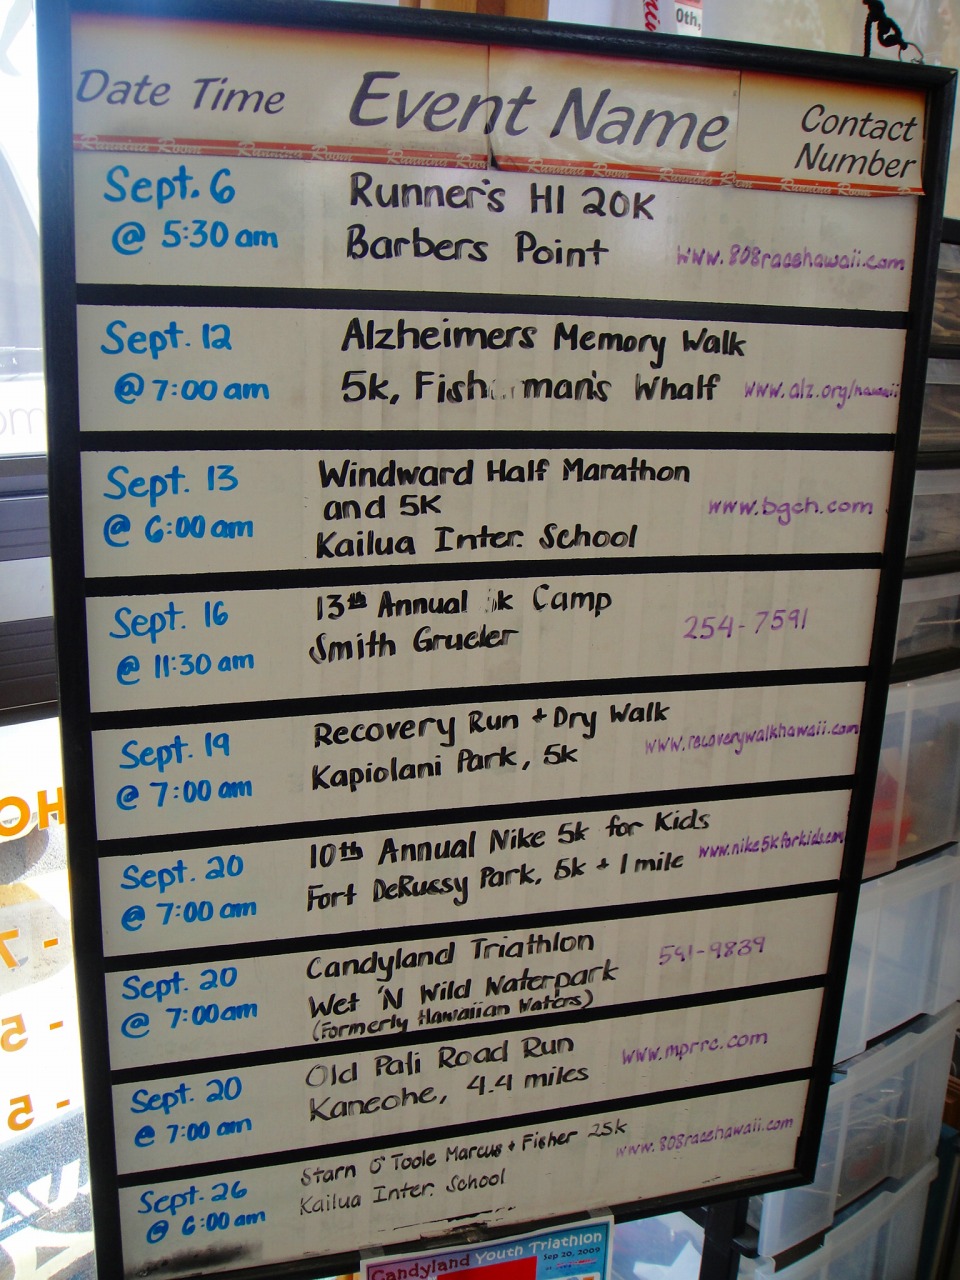 0th,
Date Time Event Name Contact Number
Running Room Running Room Running Room Running Room Running Room
Sept. 6 @ 5:30 am
Runner's HI 20K
Barbers Point
www.808racehawaii.com
Sept. 12 @ 7:00 am
Alzheimers Memory Walk
5k, Fish man's Whalf
www.alz.org/hawaii
Sept. 13 @ 6:00 am
Windward Half Marathon
and 5K
Kailua Inter. School
www.bgch.com
Sept. 16 @ 11:30 am
13th Annual k Camp
Smith Grueler
254-7591
Sept. 19 @ 7:00 am
Recovery Run + Dry Walk
Kapiolani Park, 5k
www.recoverywalkhawaii.com
Sept. 20 @ 7:00 am
10th Annual Nike 5k for Kids
Fort DeRussy Park, 5k + 1 mile
www.nike5kforkids.com
Sept. 20 @ 7:00am
Candyland Triathlon
Wet 'N Wild Waterpark
(Formerly Hawaiian Waters)
591-9839
Sept. 20 @ 7:00 am
Old Pali Road Run
Kaneohe, 4.4 miles
www.mprrc.com
Sept. 26 @ 6:00 am
Starn O'Toole Marcus + Fisher 25k
Kailua Inter. School
www.808racehawaii.com
Candyland Youth Triathlon
Sep 20, 2009